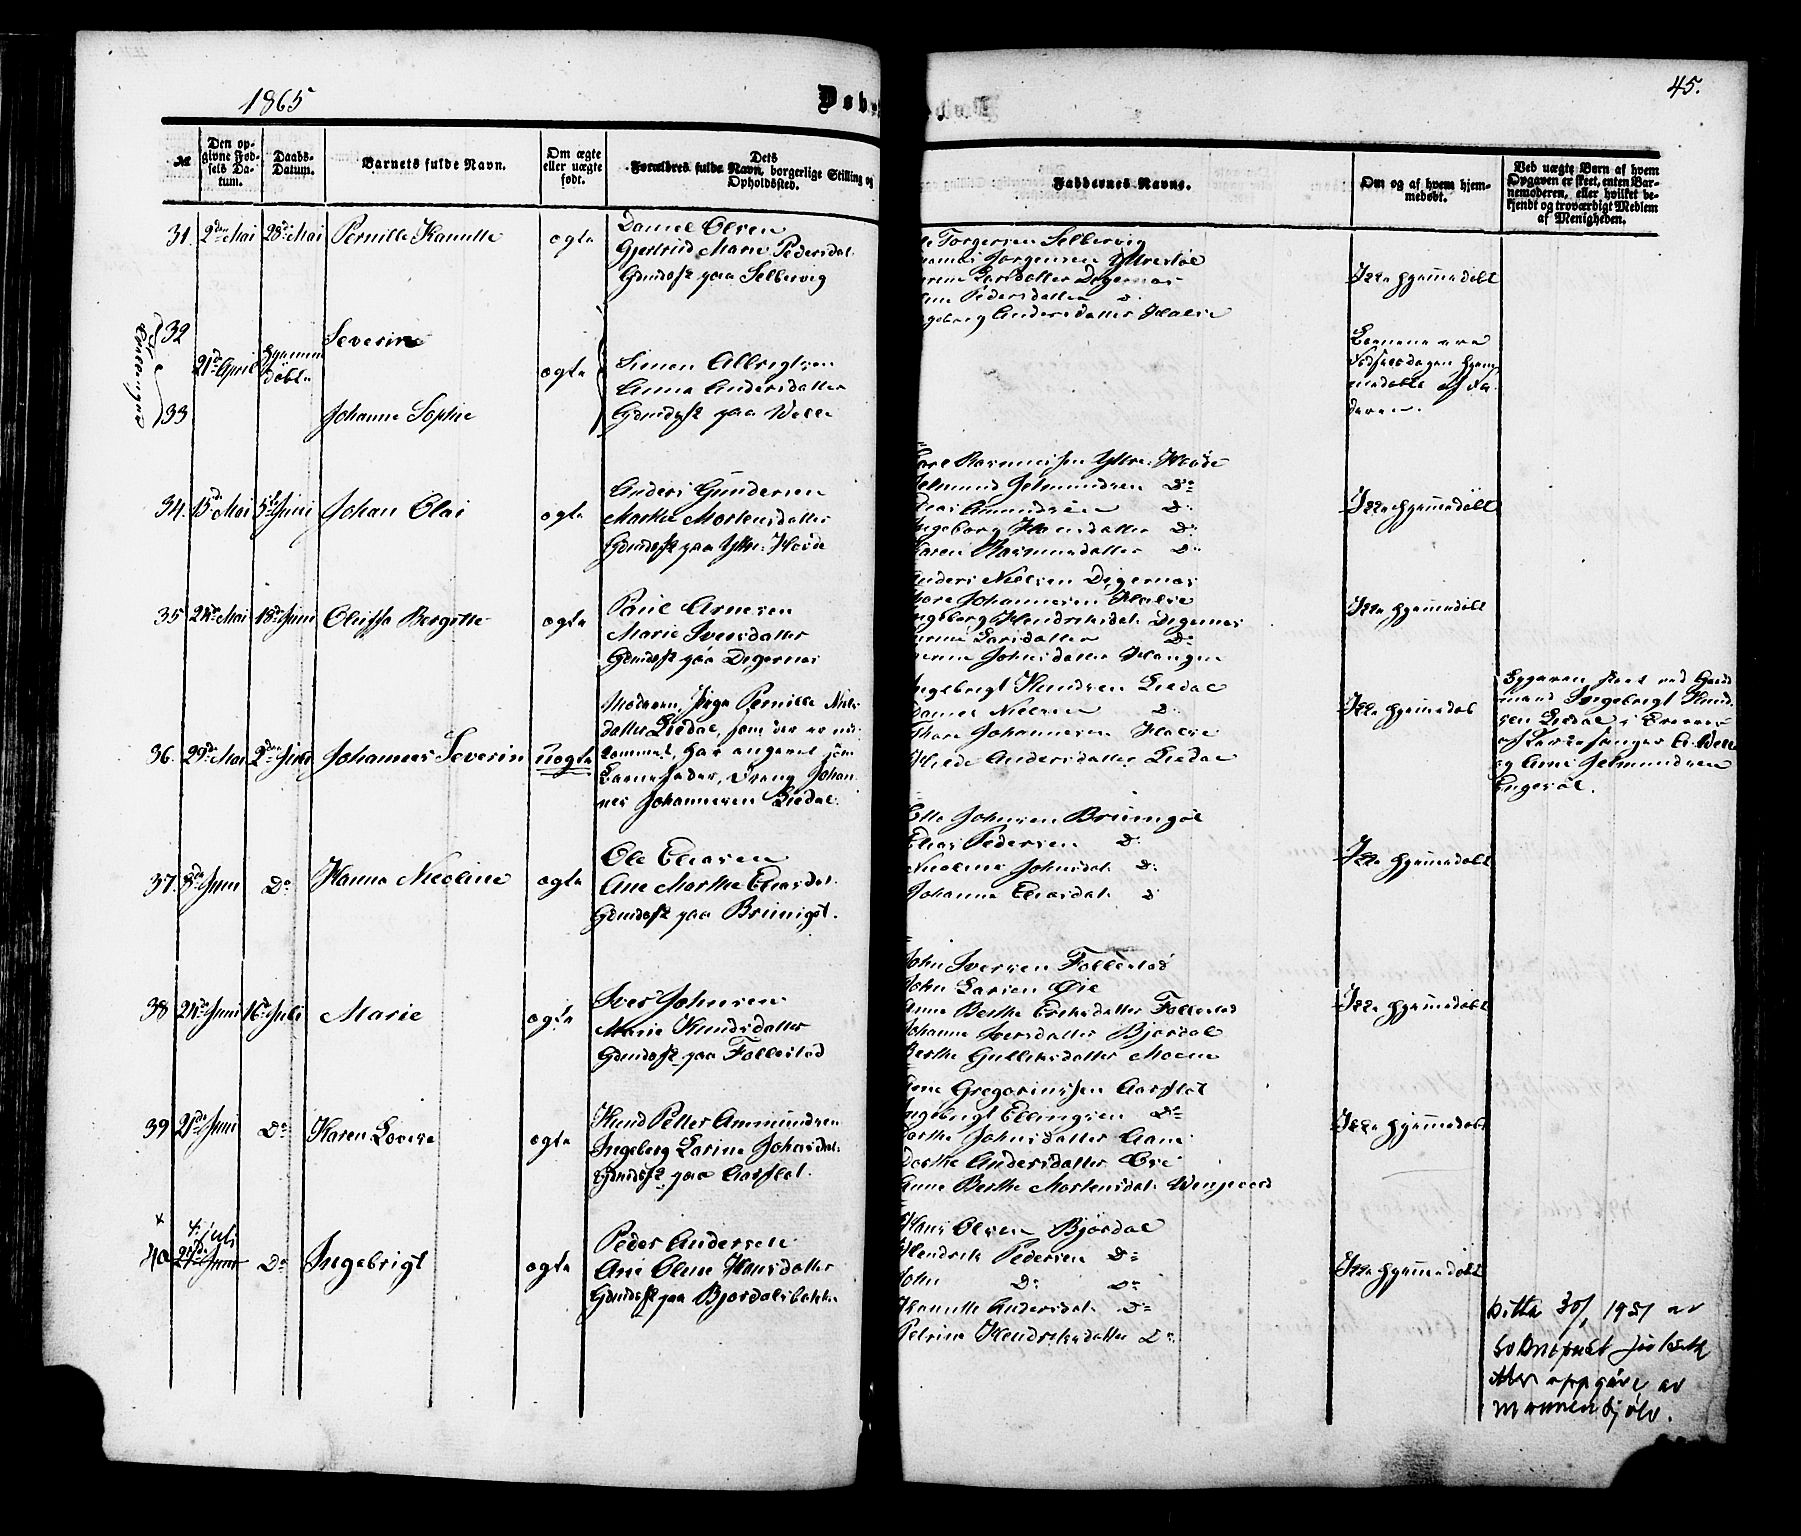 1865
Døb
45.
№
Den opgivne Fødsels Datum.
Daabs-Datum.
Barnets fulde Navn.
Om ægte eller uægte født.
Dets Forældres fulde Navn, borgerlige Stilling og Opholdssted.
Faddernes Navne.
Om og af hvem hjemmedøbt.
Ved uægte Børn af hvem Opgaven er skeet, enten Barnemoderen, eller hvilket bekjendt og troværdigt Medlem af Menigheden.
31. 2den Mai 28de Mai Pernille Kanutte ægte
Daniel Olsen
Gjertrud Marie Pedersdat.
Gbmdsfk paa Selbervig
Torgersen Selbervig
Jørgensen Yttrestøl
Larsdatter Digernæs
Pedersdatter D:
Andersdatter Halse
Ikke hjemmedøbt
32
Severine
21de April hjemmedøbte ægte
33
Johanne Sophie
Simon Albrigtsen
Anna Andersdatter
Gbmdsfk paa Welle
Børnene ere
Fødselsdagen hjem
medøbte af Fa
deren.
34. 15de Mai 5te Juni Johan Olai ægte
Anders Gundersen
Marthe Mortensdatter
Gbmdsfk paa Yttre Hovde
Rasmussen Yttre Hovde
Jetmund Jetmundsen Do
Elias Amundsen D:
Ingeborg Hansdatter D:
Karen Rasmusdatter D:
Ikke hjemmedøbt
35 24de Mai 18de Juni Oluffa Bergitte ægte
Paul Arnesen
Marie Iversdatter
Gbmdsfk paa Digernæs
Anders Nielsen Digernæs
Johannesen Halse
Ingeborg Hendriksdat. Digernæs
Larsdatter Do
Johnsdatter Haugen
Ikke hjemmedøbt
36. 29de Mai 2den Juli Johannes Severin uægte
Moderen, Inga Pernille Niels
datter Liedal, som
har angivet som
Barnefader, Dreng Johan
nes Johannesen Liedal.
Ingebrigt Knudsen Liedal
Daniel Nielsen D:
Thore Johannesen Halse
Andersdatter Liedal
Ikke hjemmedøb
Opgaven skeet ved Gaard
mand Ingebrigt Knud
sen Liedal
af Kirkesanger A. Welle
og Arne Jetmundsen
Engeset.
37. 3de Juni Do Hanna Nicoline ægte
Ole Eliasen
Ane Marthe Eliasdat.
Gbmdsfk paa Bruingøt.
Johnsen Bruingøt
Elias Pedersen D:
Nicoline Johnsdat. D:
Johanne Eliasdat. D
Ikke hjemmedøbt
38 24de Juni 16de Juli Marie ægte
Iver Johnsen
Marie Knudsdatter
Gbmdsfk paa Follestad
John Iversen Follestad
John Larsen Øie
Anne Berthe Eriksdatter Follestad
Johanne Iversdatter Bjørdal
Berthe Gulliksdatter Moene
Ikke hjemmedøbt
39 21de Juni Do Karen Lovise ægte
Knud Petter Ammundsen
Ingeborg Larine Johnsdat.
Gbmdsfk paa Aarflot
Gregoriussen Aarflot
Ingebrigt Ellingsen Do
Johnsdatter Aam
Dorthe Andersdatter
Anne Berthe Mortensdat.
Ikke hjemmedøbt
x
4 juli
40 27de Juni Do Ingebrigt ægte
Peder Andersen
Ane Oline Hansdatter
Gbmdsfk paa Bjørdalsbakke
Hans Olsen Bjørdal
Hendrik Pedersen Do
John D: Do
Andersdat. Do
Petrine Hendriksdatter Do
Ikke hjemmedøbt
Ditta 30/1 1951 av
soknepr
etter oppgåve av
mannen sjølv.